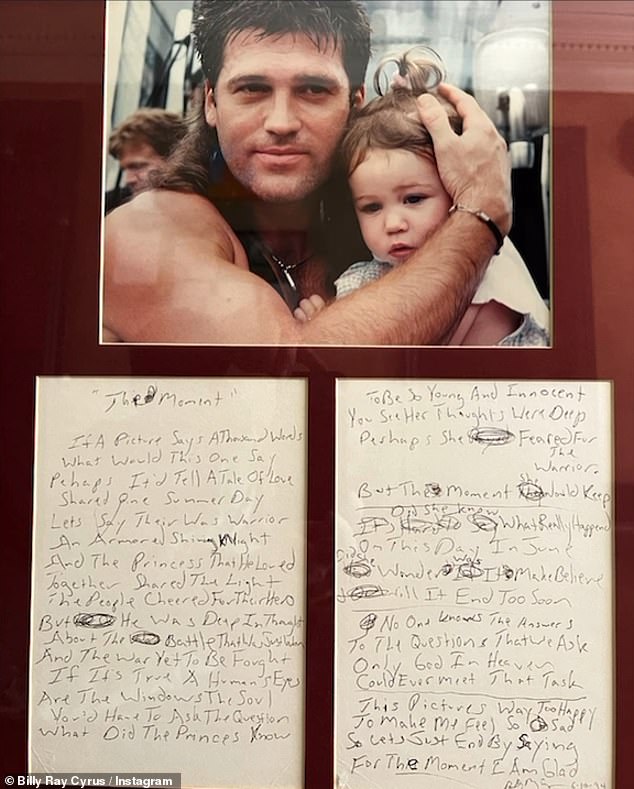 "The Moment"
If A Picture Says A Thousand Words
What Would This One Say
Pehaps It'd Tell A Tale Of Love
Shared One Summer Day
Lets Say Their Was Warrior
An Armored Shining Knight
And The Princess That He Loved
Together Shared The Light
The People Cheered For Their Hero
But He Was Deep In Thought
About The Battle That Was Just Won
And The War Yet To Be Fought
If It's True A Human's Eyes
Are The Windows The Soul
You'd Have To Ask The Question
What Did The Princes Know
To Be So Young And Innocent
You See Her Thoughts Were Deep
Perhaps She Feared For
The
Warrior.
But The Moment She Would Keep
Did she know
What Really Happend
On This Day In June
Did She Wonder was It Make Believe
Will It End Too Soon
No One Knows The Answers
To The Questions That We Ask
Only God In Heaven
Could Ever Meet That Task
This Pictures Way Too Happy
To Make Me Feel So Sad
So Lets Just End By Saying
For The Moment I Am Glad
6-10-94
© Billy Ray Cyrus / Instagram